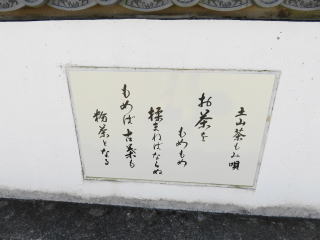 土山茶もみ唄
お茶を
もめもめ
揉まねばならぬ
もめば古茶も
粉茶となる